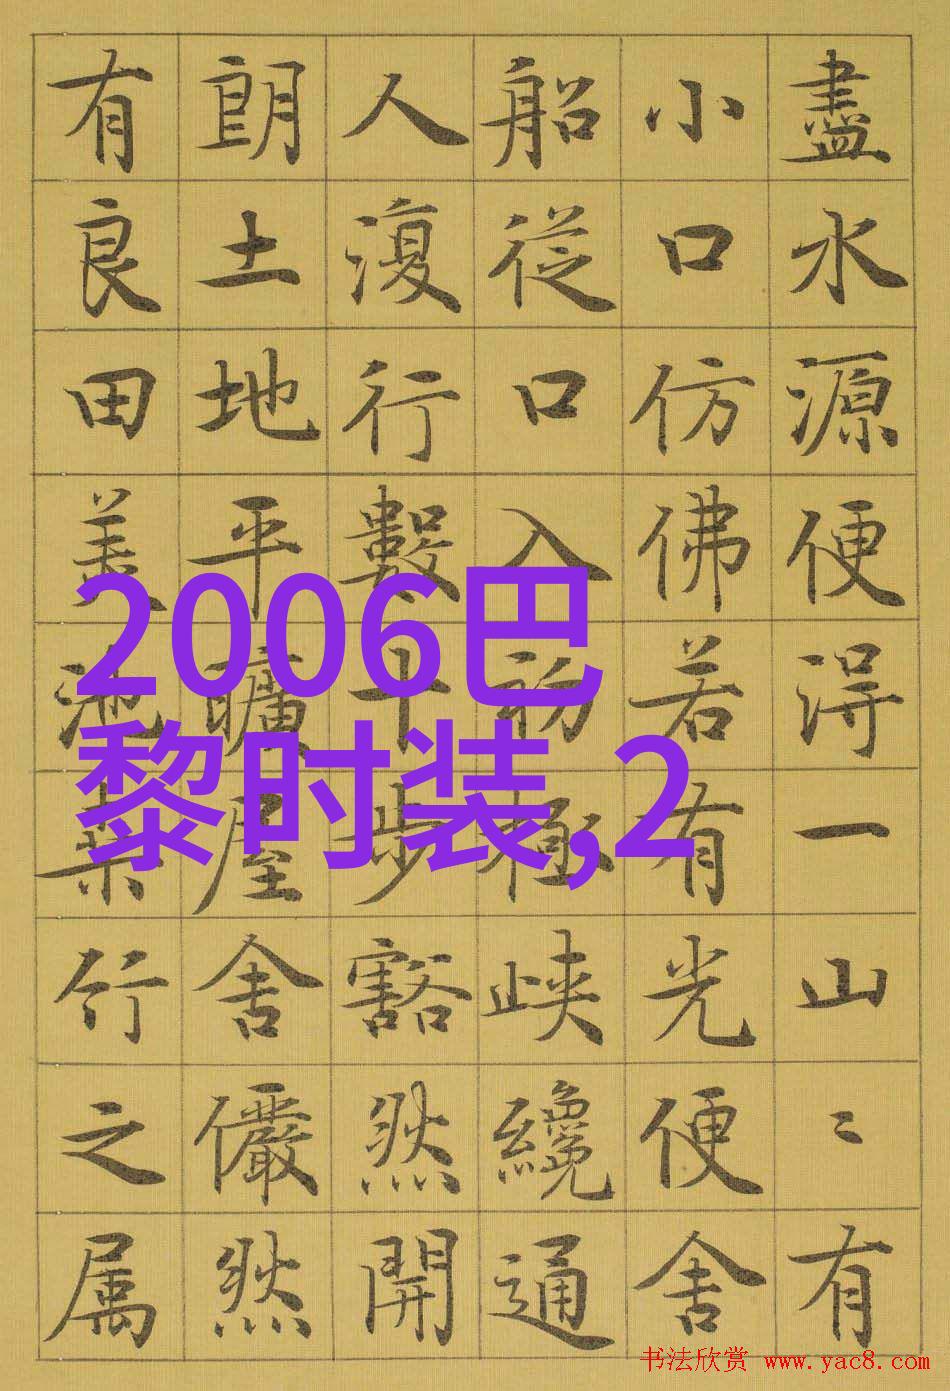 盡水源便得一山〻有
小口仿佛若有光便舍
船從口入初極峽纔通
人復行數十步豁然開
朗土地平曠屋舍儼然
有良田美池桑竹之属
2006巴
黎时装,2
书法欣赏 www.yac8.com